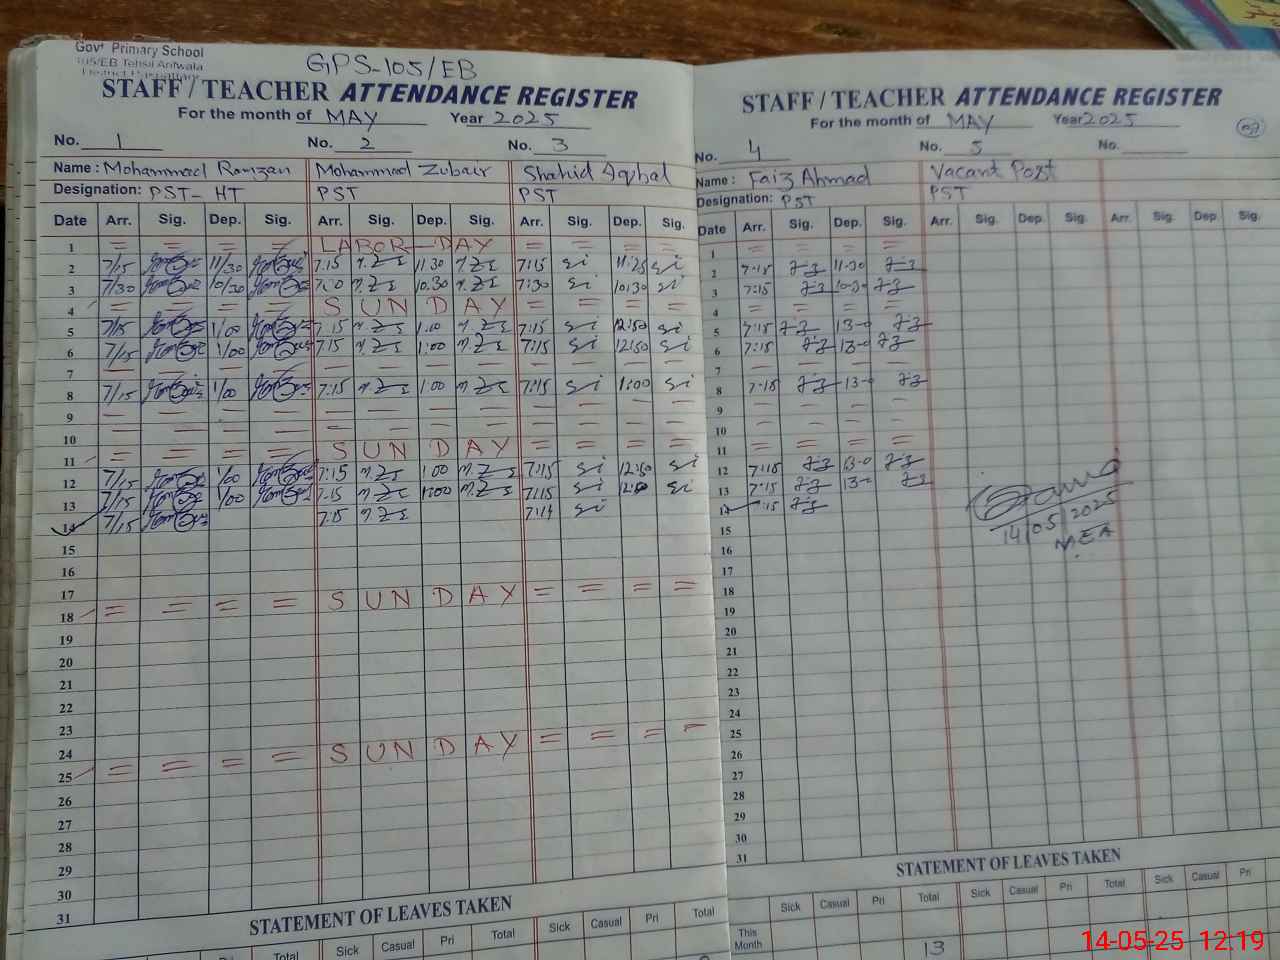 Govt Primary School
105/EB Tehsil Arifwala
GPS-105/EB
STAFF / TEACHER ATTENDANCE REGISTER
For the month of MAY Year 2025
No. 1 No. 2 No. 3
Name: Mohammad Ramzan Mohammad Zubair Shahid Iqbal
Designation: PST-HT PST PST
Date Arr. Sig. Dep. Sig. Arr. Sig. Dep. Sig. Arr. Sig. Dep. Sig.
1 = = = = LABOR-DAY = = = =
2 7/15 11/30 7:15 11:30 7:15 11:25
3 7/30 10/30 10:30 7:30 10:30
4 = = = = SUNDAY = = = =
5 7/15 1/00 7:15 1:00 7:15 12:50
6 7/15 1/00 7:15 1:00 7:15 12:50
7
8 7/15 1/00 7:15 1:00 7:15 1:00
9
10
11 = = = = SUNDAY = = = =
12 7/15 1/00 7:15 1:00 7:15 12:50
13 7/15 1/00 7:15 1:00 7:15
14 7/15 7:15 7:14
15
16
17
18 = = = = SUNDAY = = = =
19
20
21
22
23
24
25 = = = = SUNDAY = = = =
26
27
28
29
30
31
STATEMENT OF LEAVES TAKEN
Sick Casual Pri Total Sick Casual Pri Total
STAFF / TEACHER ATTENDANCE REGISTER
For the month of MAY Year 2025
No. 4 No. 5 No.
Name: Faiz Ahmad Vacant Post
Designation: PST PST
Date Arr. Sig. Dep. Sig. Arr. Sig. Dep. Sig. Arr. Sig. Dep. Sig.
1 = = = =
2 7:15 11:30
3 7:15
4 = = = =
5 7:15 13-0
6 7:15 13-0
7
8 7:15 13-0
9
10
11 = = = =
12 7:15 13-0
13 7:15 13-0
14 7:15
15
16
17
18
19
20
21
22
23
24
25
26
27
28
29
30
31
14/05/2025
MEA
STATEMENT OF LEAVES TAKEN
Sick Casual Pri Total Sick Casual Pri Total Sick Casual Pri
This Month 13
14-05-25 12:19